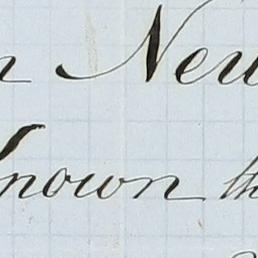 n New
known th